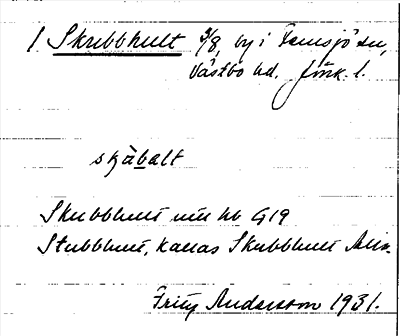 1 Skubbhult 3/8, by i Femsjö sn,
Västbo hd. Jönk. l.
skàbalt
Skubbhult nu hb G19
Stubbhult, kallas Skubbhult
Fritz Andersson 1931.